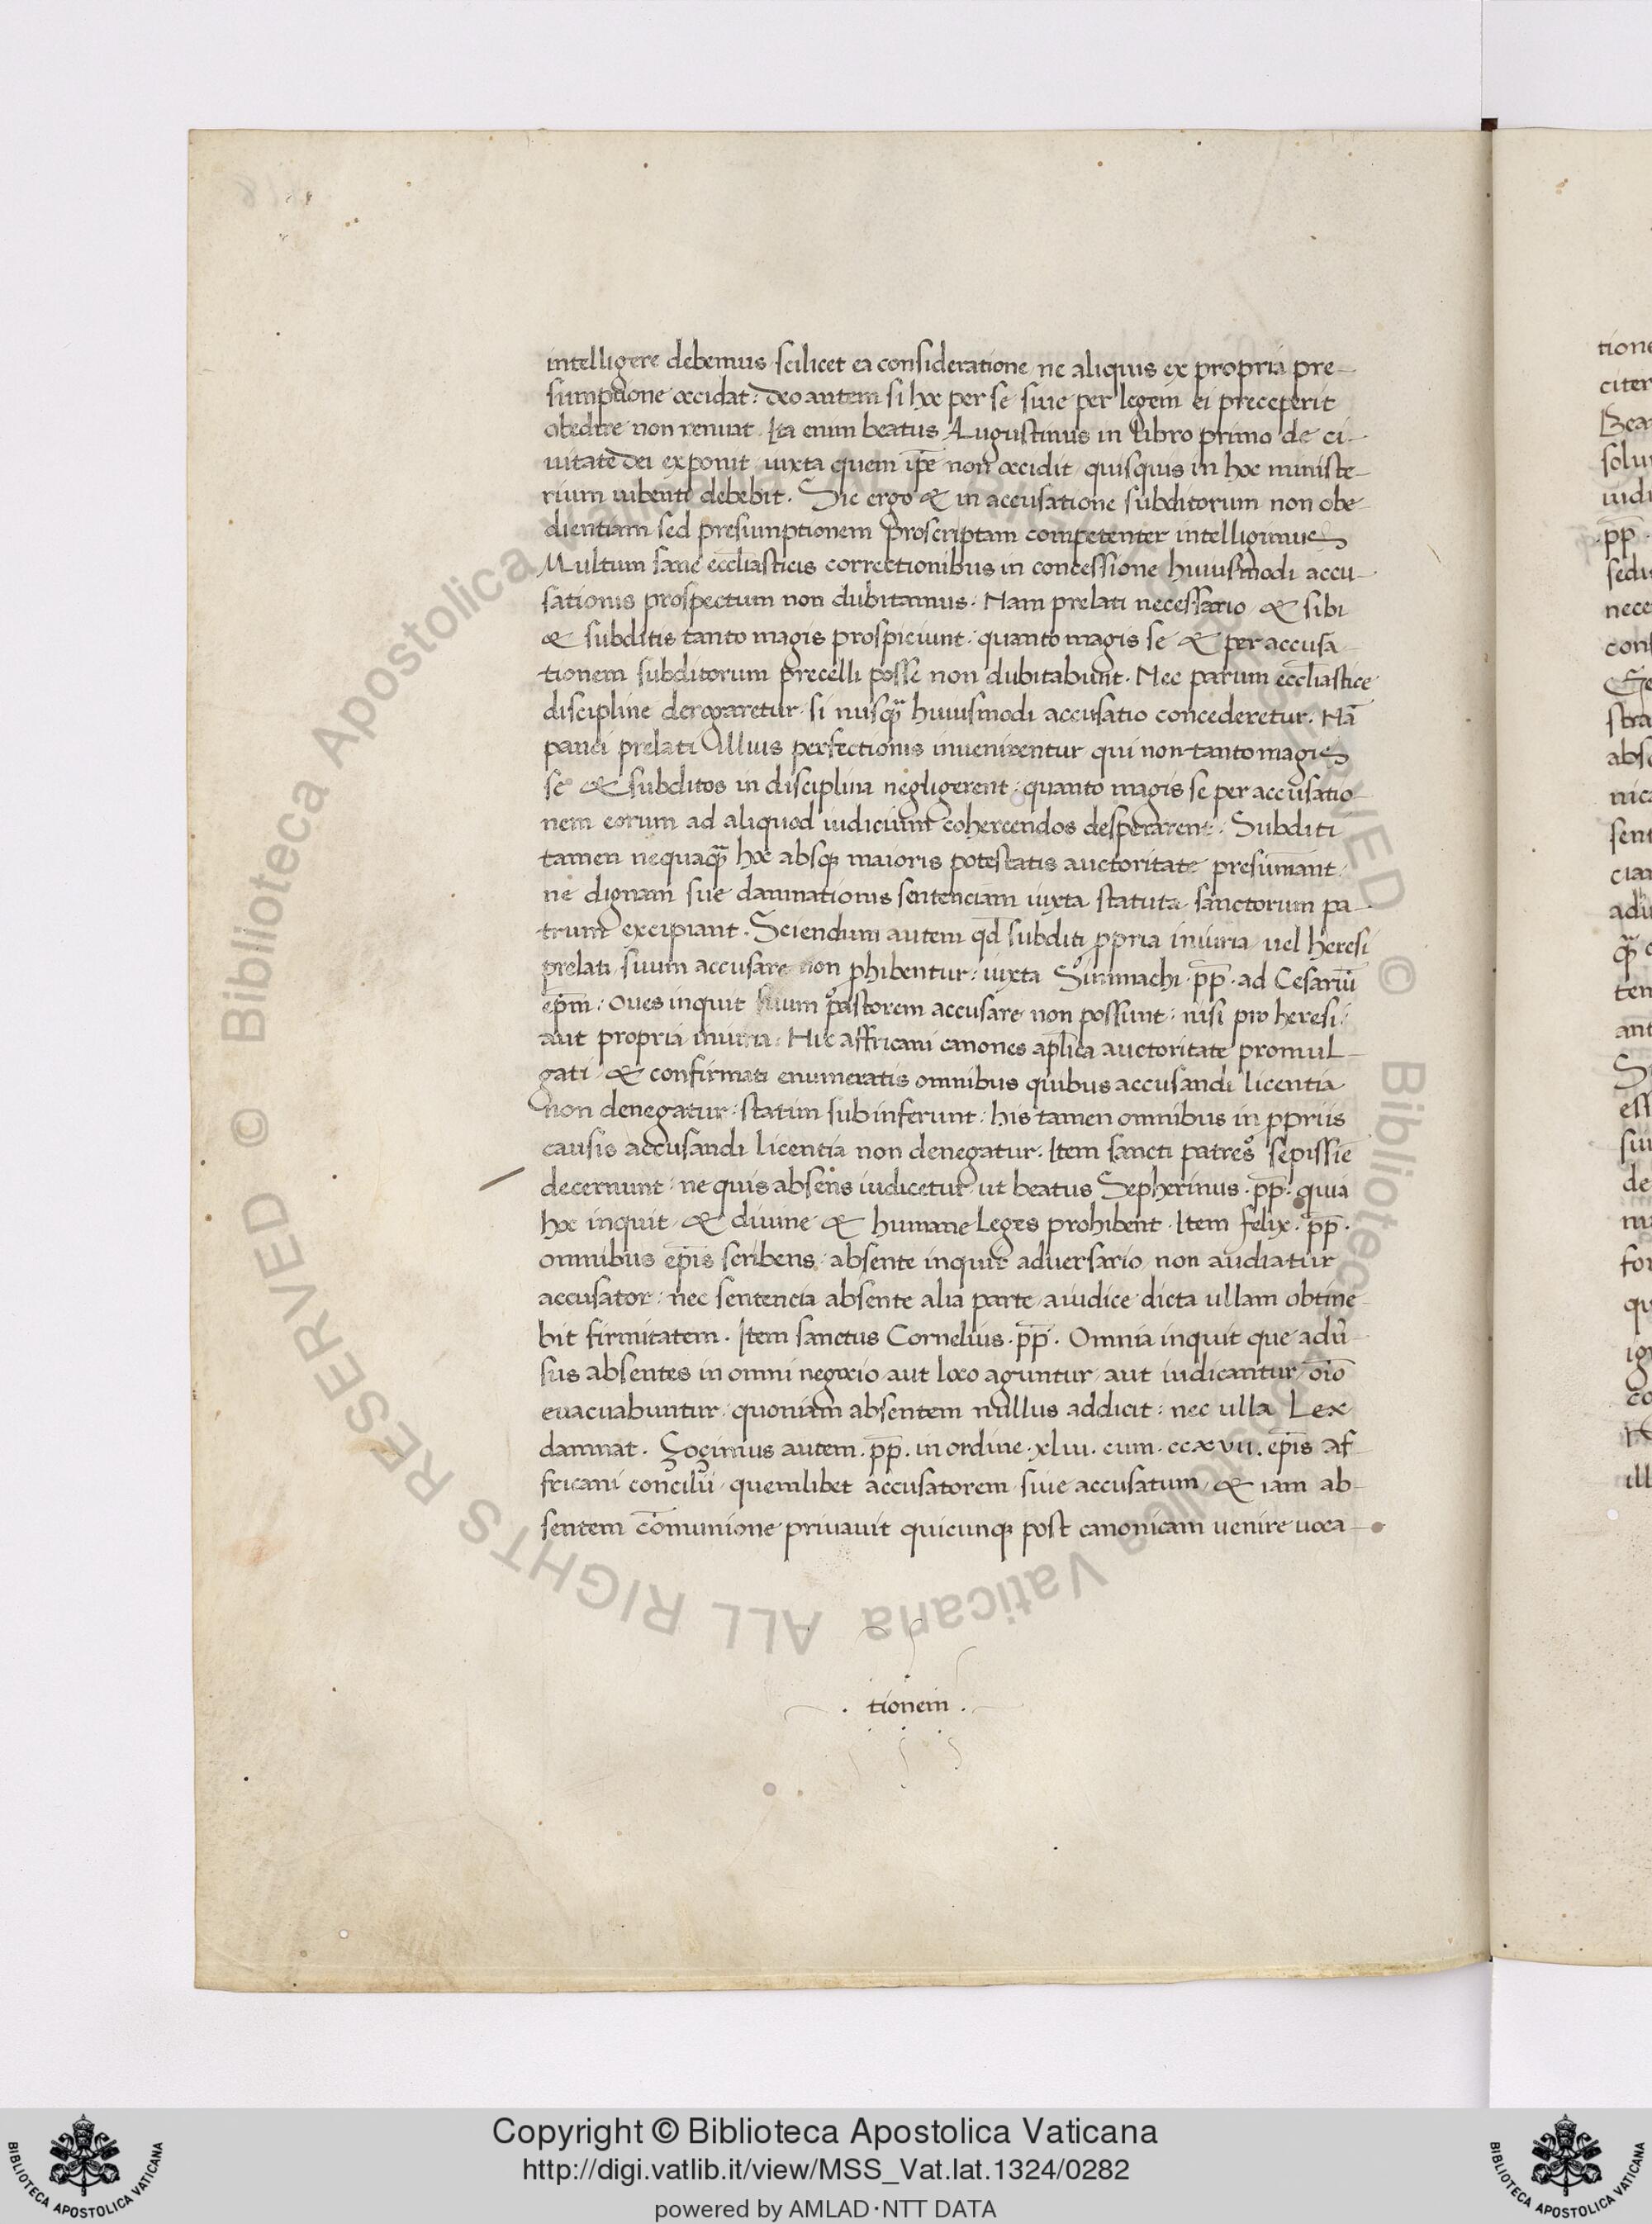 intelligere debemus scilicet ea consideratione ne aliquis ex propria pre-
sumptione occidat: deo autem si hoc per se siue per legem ei preceperit
obedire non renuat. Ita enim beatus Augustinus in libro primo de ci-
uitate dei exponit iuxta quem ip̄e non occidit quisquis in hoc ministe-
rium iubenti debebit. Sic ergo & in accusatione subditorum non obe-
dientiam sed presumptionem proscriptam competenter intelligimus
Multum sane eccl̄iasticis correctionibus in concessione huiusmodi accu-
sationis prospectum non dubitamus. Nam prelati necessario & sibi
& subditis tanto magis prospiciunt: quanto magis se & per accusa-
tionem subditorum precelli posse non dubitabunt. Nec parum eccl̄iastice
discipline derogaretur. si nusq̄ huiusmodi accusatio concederetur. Nā
pauci prelati illius perfectionis inuenirentur qui non tanto magis
se & subditos in disciplina negligerent: quanto magis se per accusatio-
nem eorum ad aliquod iudicium cohercendos desperarent. Subditi
tamen nequaq̄ hoc absq; maioris potestatis auctoritate presumant:
ne dignam sue damnationis sentenciam iuxta statuta sanctorum pa-
trum excipiant. Sciendum autem qd̄ subditi ꝓpria iniuria uel heresi
prelati suum accusare non ꝓhibentur: iuxta Simmachi .pp̄. ad Cesariū
ep̄m: Oues inquit suum pastorem accusare non possunt: nisi pro heresi:
aut propria iniuria. Hic affricani canones apl̄ica auctoritate promul-
gati & confirmati enumeratis omnibus quibus accusandi licentia
non denegatur: statim subinferunt: his tamen omnibus in ꝓpriis
causis accusandi licentia non denegatur. Item sancti patres sepissie
decernunt: ne quis absens iudicetur ut beatus Sepherinus .pp̄. quia
hoc inquit & diuine & humane leges prohibent. Item felix .pp̄.
omnibus ep̄is scribens: absente inquit aduersario non audiatur
accusator: nec sentencia absente alia parte a iudice dicta ullam obtine-
bit firmitatem. Item sanctus Cornelius .pp̄. Omnia inquit que adū-
sus absentes in omni negocio aut loco aguntur aut iudicantur oīo
euacuabuntur. quoniam absentem nullus addicit: nec ulla Lex
damnat. Zozimus autem .pp̄. in ordine .xliii. cum .ccxvii. ep̄is af-
fricani concilii quemlibet accusatorem siue accusatum & iam ab-
sentem cōmunione priuauit quicunq; post canonicam uenire uoca-
. tionem .
tione
citer
Bea
solu
iudi
.pp̄.
sedi
nece
cons
Ge
stra
abse
nica
sent
cian
adu
q̄ c
tem
ant
Si
ess
siu
de
for
qu
ill
© Biblioteca Apostolica Vaticana ALL RIGHTS RESERVED © Biblioteca Apostolica Vaticana ALL RIGHTS RESERVED
BIBLIOTECA APOSTOLICA VATICANA
Copyright © Biblioteca Apostolica Vaticana
http://digi.vatlib.it/view/MSS_Vat.lat.1324/0282
powered by AMLAD·NTT DATA
BIBLIOTECA APOSTOLICA VATICANA